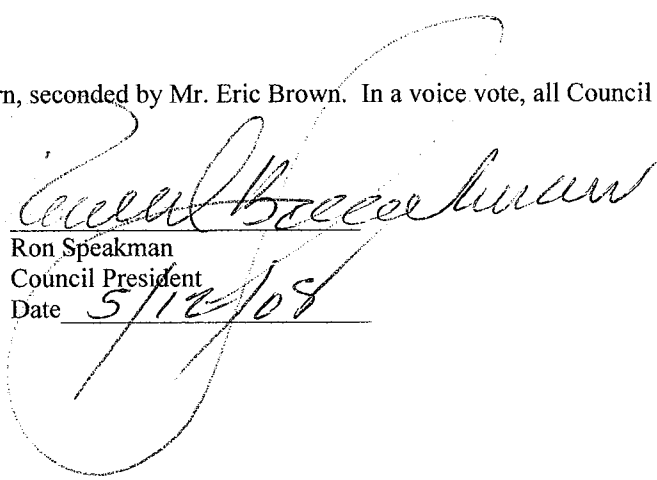 rn, seconded by Mr. Eric Brown. In a voice vote, all Council
Ron Speakman
Council President
Date 5/12/08